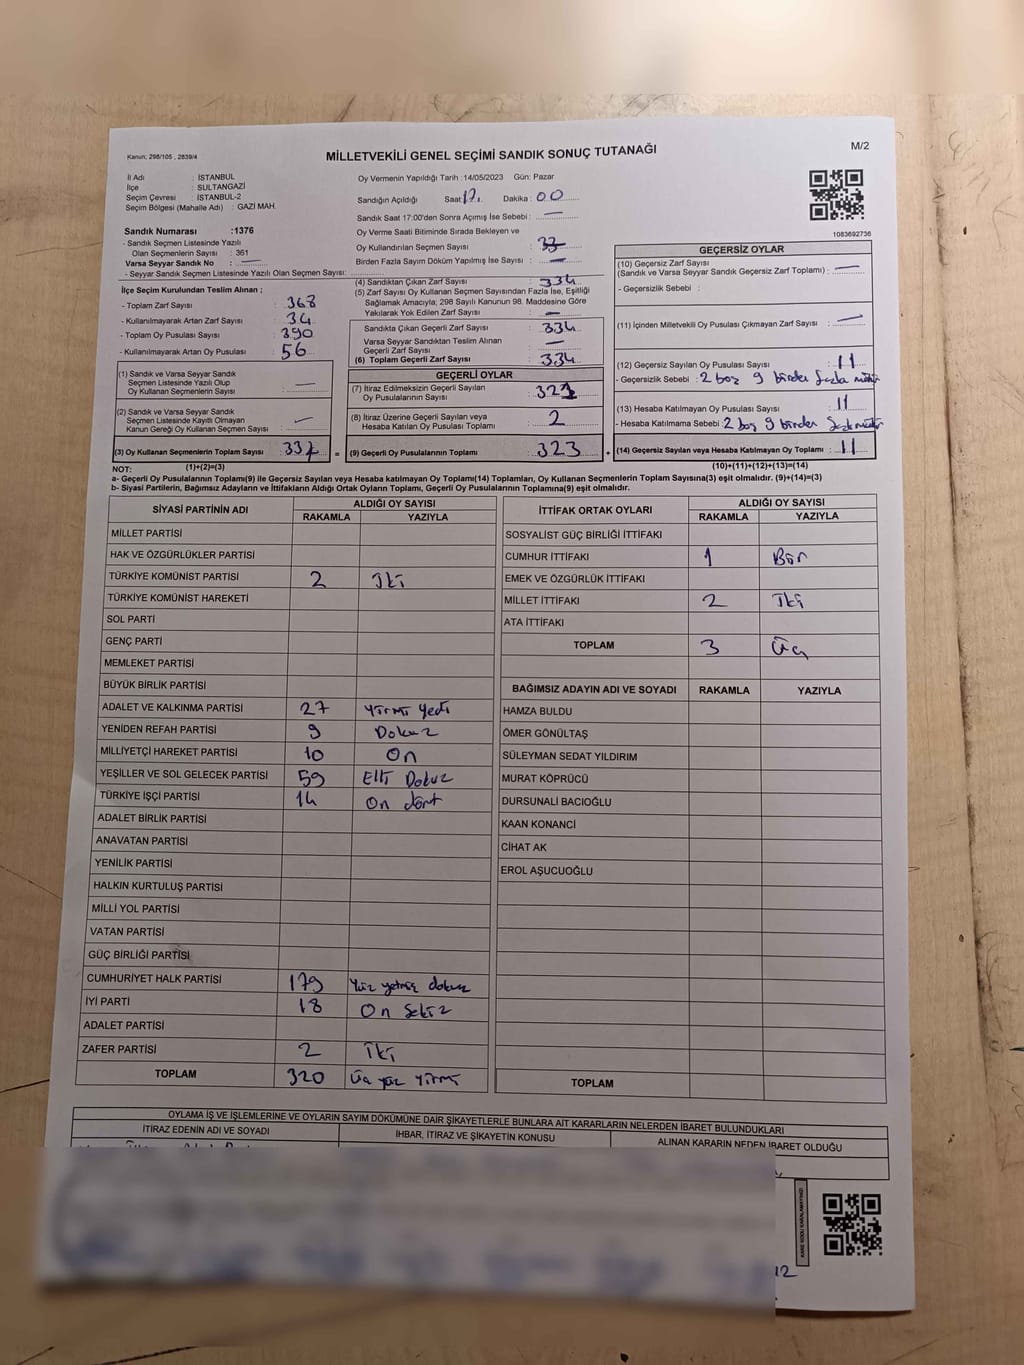 Kanun; 298/105 , 2839/4
MİLLETVEKİLİ GENEL SEÇİMİ SANDIK SONUÇ TUTANAĞI
M/2
İl Adı : İSTANBUL
İlçe : SULTANGAZİ
Seçim Çevresi : İSTANBUL-2
Seçim Bölgesi (Mahalle Adı) : GAZİ MAH.
Oy Vermenin Yapıldığı Tarih :14/05/2023 Gün: Pazar
Sandığın Açıldığı Saat: 17 Dakika : 00
Sandık Saat 17:00'den Sonra Açımış İse Sebebi : —
Oy Verme Saati Bitiminde Sırada Bekleyen ve
Oy Kullandırılan Seçmen Sayısı :
Birden Fazla Sayım Döküm Yapılmış İse Sayısı : —
1083692736
Sandık Numarası :1376
- Sandık Seçmen Listesinde Yazılı
Olan Seçmenlerin Sayısı : 361
Varsa Seyyar Sandık No : —
- Seyyar Sandık Seçmen Listesinde Yazılı Olan Seçmen Sayısı:
İlçe Seçim Kurulundan Teslim Alınan ;
- Toplam Zarf Sayısı : 368
- Kullanılmayarak Artan Zarf Sayısı : 34
- Toplam Oy Pusulası Sayısı : 390
- Kullanılmayarak Artan Oy Pusulası : 56
(1) Sandık ve Varsa Seyyar Sandık
Seçmen Listesinde Yazılı Olup
Oy Kullanan Seçmenlerin Sayısı : —
(2) Sandık ve Varsa Seyyar Sandık
Seçmen Listesinde Kayıtlı Olmayan
Kanun Gereği Oy Kullanan Seçmen Sayısı : —
(3) Oy Kullanan Seçmenlerin Toplam Sayısı : 334 =
(4) Sandıktan Çıkan Zarf Sayısı : 334
(5) Zarf Sayısı Oy Kullanan Seçmen Sayısından Fazla İse, Eşitliği
Sağlamak Amacıyla; 298 Sayılı Kanunun 98. Maddesine Göre
Yakılarak Yok Edilen Zarf Sayısı : —
Sandıkta Çıkan Geçerli Zarf Sayısı : 334
Varsa Seyyar Sandıktan Teslim Alınan
Geçerli Zarf Sayısı : —
(6) Toplam Geçerli Zarf Sayısı : 334
GEÇERLİ OYLAR
(7) İtiraz Edilmeksizin Geçerli Sayılan
Oy Pusulasının Sayısı : 321
(8) İtiraz Üzerine Geçerli Sayılan veya
Hesaba Katılan Oy Pusulası Toplamı : 2
(9) Geçerli Oy Pusulasının Toplamı : 323 +
GEÇERSİZ OYLAR
(10) Geçersiz Zarf Sayısı
(Sandık ve Varsa Seyyar Sandık Geçersiz Zarf Toplamı) : —
- Geçersizlik Sebebi :
(11) İçinden Milletvekili Oy Pusulası Çıkmayan Zarf Sayısı : —
(12) Geçersiz Sayılan Oy Pusulası Sayısı : 11
- Geçersizlik Sebebi : 2 boş 9 birden fazla mühür
(13) Hesaba Katılmayan Oy Pusulası Sayısı : 11
- Hesaba Katılmama Sebebi : 2 boş 9 birden
(14) Geçersiz Sayılan veya Hesaba Katılmayan Oy Toplamı : 11
NOT: (1)+(2)=(3) (10)+(11)+(12)+(13)=(14)
a- Geçerli Oy Pusulalarının Toplamı(9) ile Geçersiz Sayılan veya Hesaba katılmayan Oy Toplamı(14) Toplamları, Oy Kullanan Seçmenlerin Toplam Sayısına(3) eşit olmalıdır. (9)+(14)=(3)
b- Siyasi Partilerin, Bağımsız Adayların ve İttifakların Aldığı Ortak Oyların Toplamı, Geçerli Oy Pusulalarının Toplamına(9) eşit olmalıdır.
SİYASİ PARTİNİN ADI ALDIĞI OY SAYISI
RAKAMLA YAZIYLA
MİLLET PARTİSİ
HAK VE ÖZGÜRLÜKLER PARTİSİ
TÜRKİYE KOMÜNİST PARTİSİ 2 İki
TÜRKİYE KOMÜNİST HAREKETİ
SOL PARTİ
GENÇ PARTİ
MEMLEKET PARTİSİ
BÜYÜK BİRLİK PARTİSİ
ADALET VE KALKINMA PARTİSİ 27 Yirmi Yedi
YENİDEN REFAH PARTİSİ 9 Dokuz
MİLLİYETÇİ HAREKET PARTİSİ 10 On
YEŞİLLER VE SOL GELECEK PARTİSİ 59 Elli Dokuz
TÜRKİYE İŞÇİ PARTİSİ 14 On dört
ADALET BİRLİK PARTİSİ
ANAVATAN PARTİSİ
YENİLİK PARTİSİ
HALKIN KURTULUŞ PARTİSİ
MİLLİ YOL PARTİSİ
VATAN PARTİSİ
GÜÇ BİRLİĞİ PARTİSİ
CUMHURİYET HALK PARTİSİ 179 Yüz yetmiş dokuz
İYİ PARTİ 18 On Sekiz
ADALET PARTİSİ
ZAFER PARTİSİ 2 İki
TOPLAM 320 Üç yüz Yirmi
İTTİFAK ORTAK OYLARI ALDIĞI OY SAYISI
RAKAMLA YAZIYLA
SOSYALİST GÜÇ BİRLİĞİ İTTİFAKI
CUMHUR İTTİFAKI 1 Bir
EMEK VE ÖZGÜRLÜK İTTİFAKI
MİLLET İTTİFAKI 2 İki
ATA İTTİFAKI
TOPLAM 3 Üç
BAĞIMSIZ ADAYIN ADI VE SOYADI RAKAMLA YAZIYLA
HAMZA BULDU
ÖMER GÖNÜLTAŞ
SÜLEYMAN SEDAT YILDIRIM
MURAT KÖPRÜCÜ
DURSUNALİ BACIOĞLU
KAAN KONANCİ
CİHAT AK
EROL AŞUCUOĞLU
TOPLAM
OYLAMA İŞ VE İŞLEMLERİNE VE OYLARIN SAYIM DÖKÜMÜNE DAİR ŞİKAYETLERLE BUNLARA AİT KARARLARIN NELERDEN İBARET BULUNDUKLARI
İTİRAZ EDENİN ADI VE SOYADI İHBAR, İTİRAZ VE ŞİKAYETİN KONUSU ALINAN KARARIN NEDEN İBARET OLDUĞU
KARE KODU KARALAMAYINIZ!
12